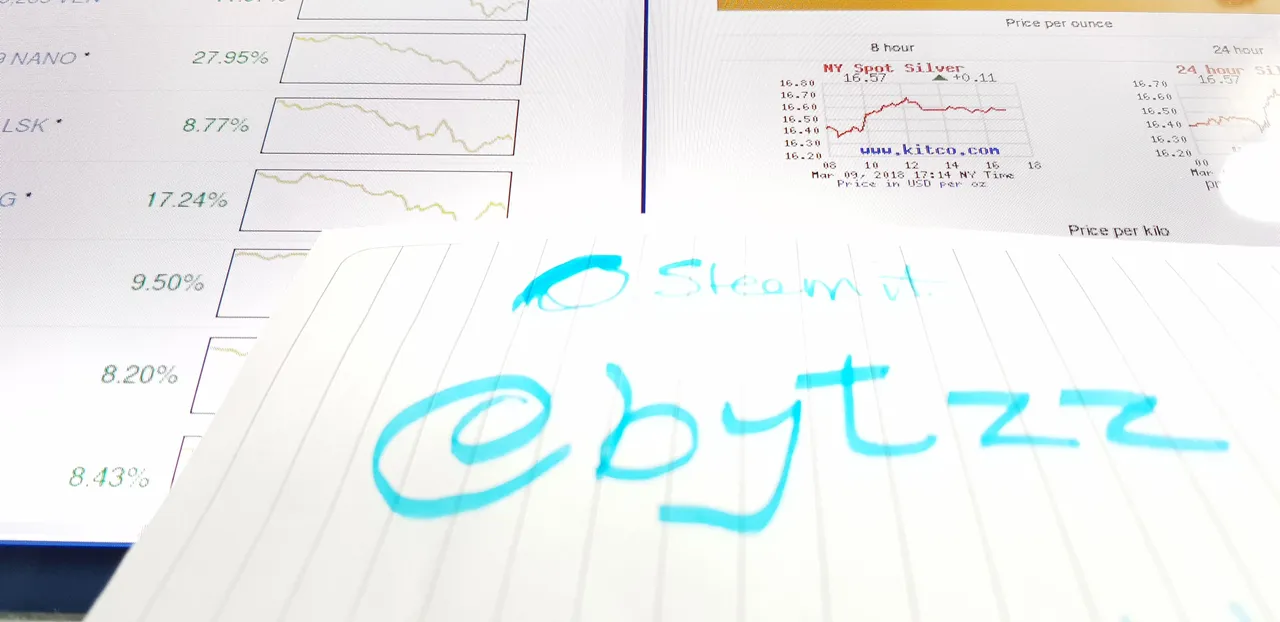 NANO *
27.95%
LSK *
8.77%
G *
17.24%
9.50%
8.20%
8.43%
Price per ounce
8 hour
NY Spot Silver
16.57 +0.11
16.80
16.70
16.60
16.50
16.40
16.30
16.20
www.kitco.com
08 10 12 14 16 18
Mar 09, 2018 17:14 NY Time
Price in USD per oz
24 hour
24 hour Sil
16.57
16.70
16.60
16.50
16.40
16.30
16.20
00
Mar
pr
Price per kilo
Steam it.
@bytzz